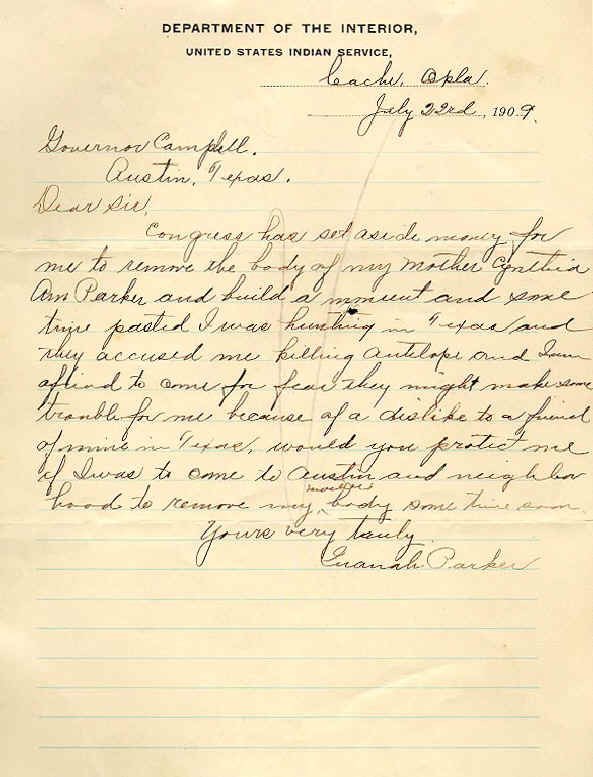 DEPARTMENT OF THE INTERIOR,
UNITED STATES INDIAN SERVICE,
Cache, Okla.
July 23rd, 1909.
Governor Campell.
Austin, Texas.
Dear Sir,
Congress has set aside money for
me to remove the body of my mother Cynthia
Ann Parker and build a monment and some
time pasted I was hunting in Texas and
they accused me killing antelope and I am
afraid to come for fear they might make some
trouble for me because of a dislike to a friend
of mine in Texas, would you protect me
if I was to come to Austin and neighbor
hood to remove my mothers body some time soon.
Yours very truly
Quanah Parker